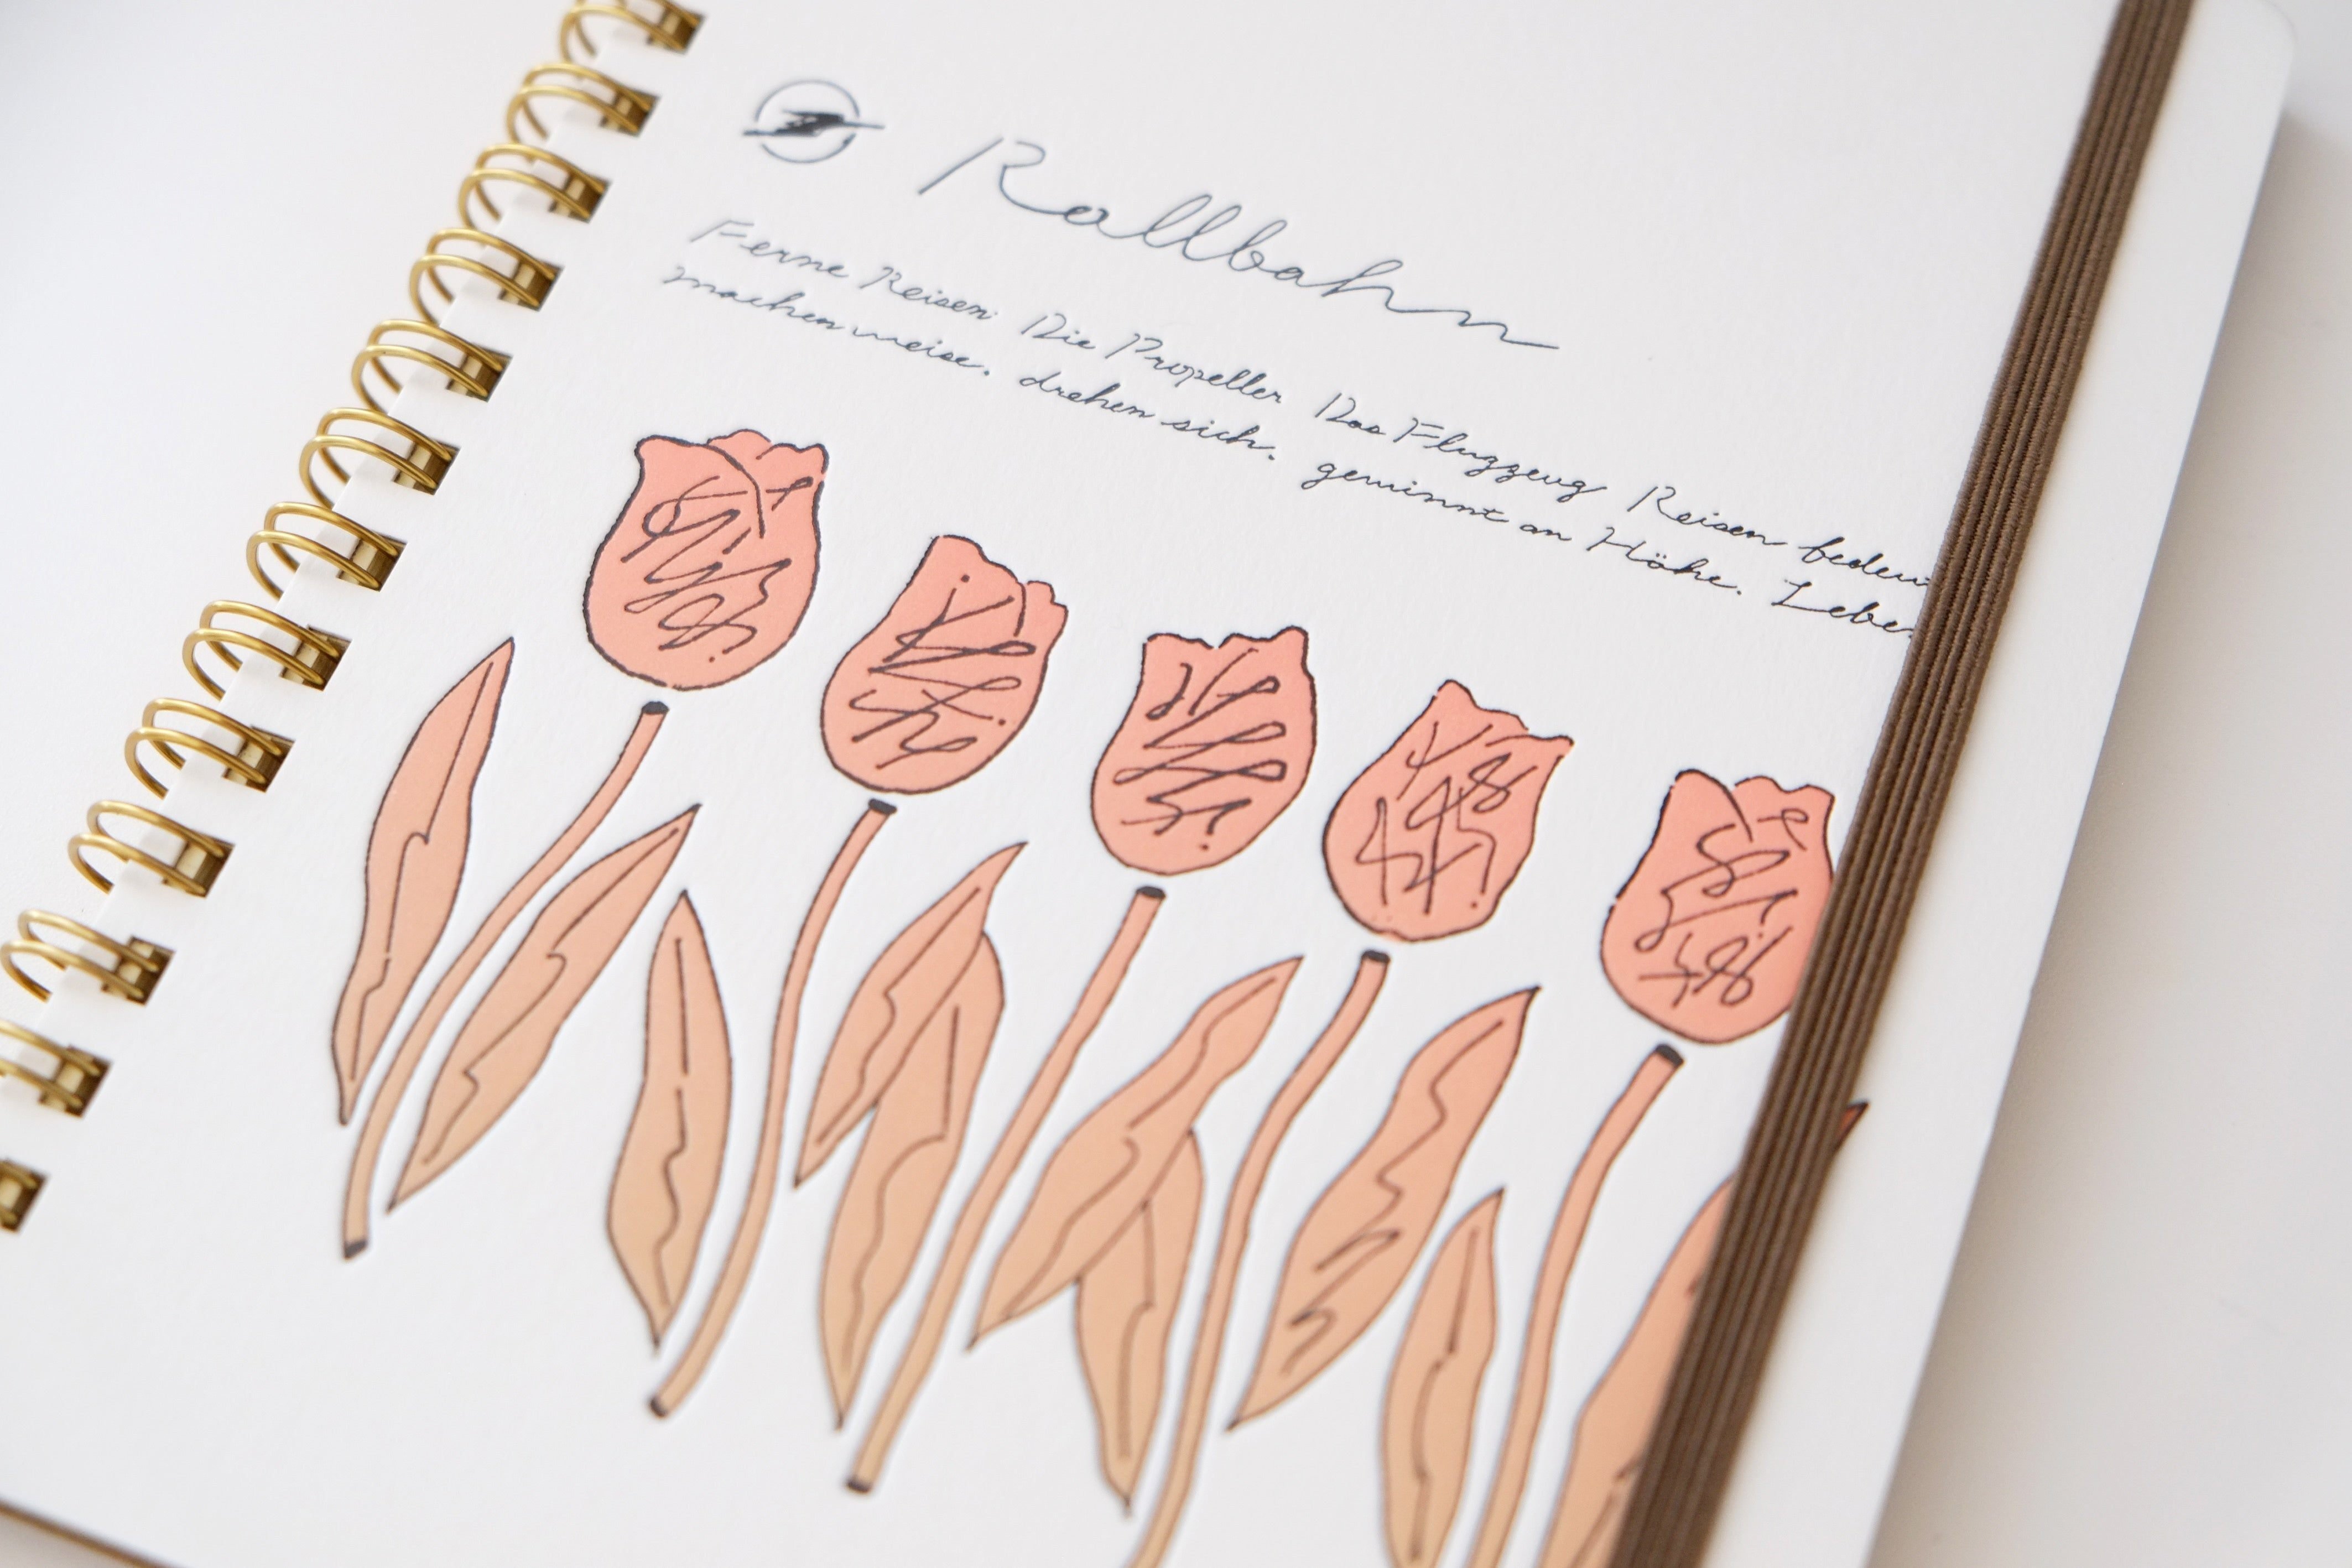 Rollbahn
Ferne Reisen
machen weise.
Die Propeller
drehen sich.
Das Flugzeug
gewinnt an Höhe.
Reisen bedeu
Lebe